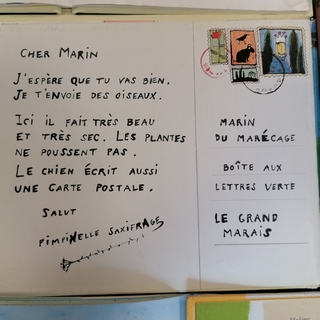 CHER MARIN
J'ESPÈRE QUE TU VAS BIEN.
JE T'ENVOIE DES OISEAUX.
ICI IL FAIT TRÈS BEAU
ET TRÈS SEC. LES PLANTES
NE POUSSENT PAS.
LE CHIEN ÉCRIT AUSSI
UNE CARTE POSTALE.
SALUT
PIMPINELLE SAXIFRAGE
MARIN
DU MARÉCAGE
BOÎTE AUX
LETTRES VERTE
LE GRAND
MARAIS